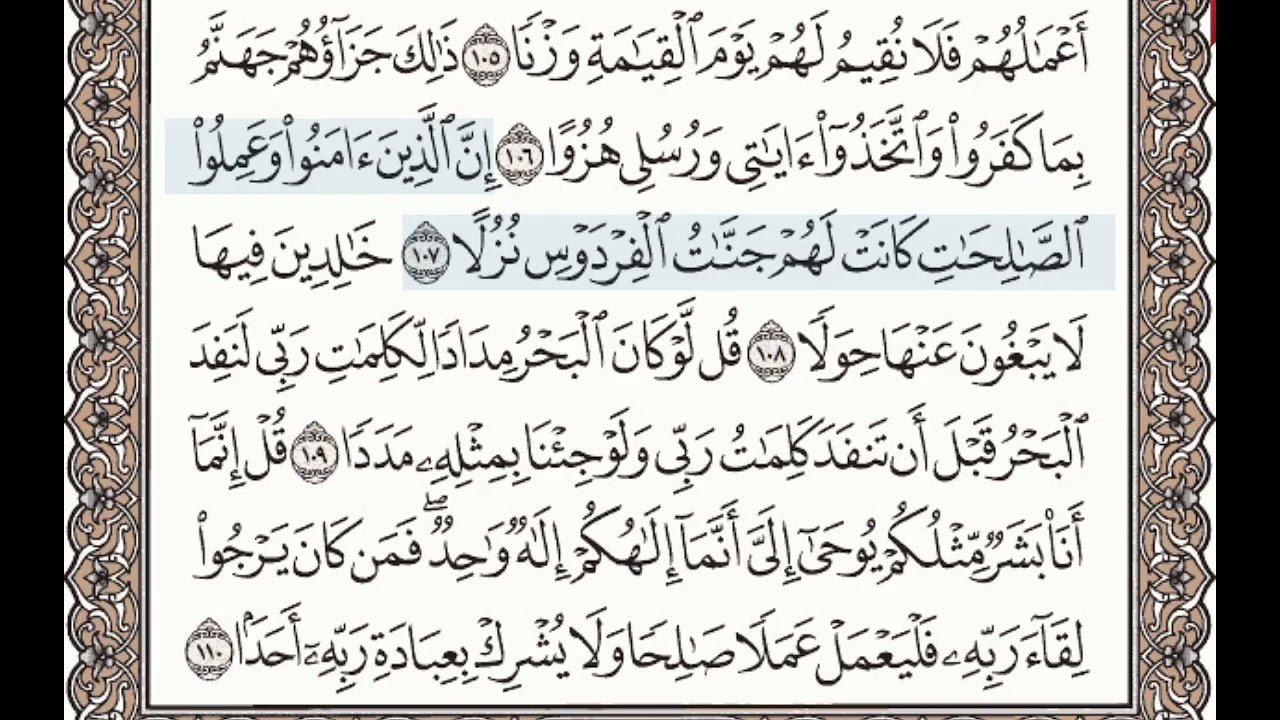 أَعْمَٰلُهُمْ فَلَا نُقِيمُ لَهُمْ يَوْمَ ٱلْقِيَٰمَةِ وَزْنًا ١٠٥ ذَٰلِكَ جَزَآؤُهُمْ جَهَنَّمُ
بِمَا كَفَرُوا۟ وَٱتَّخَذُوٓا۟ ءَايَٰتِى وَرُسُلِى هُزُوًا ١٠٦ إِنَّ ٱلَّذِينَ ءَامَنُوا۟ وَعَمِلُوا۟
ٱلصَّٰلِحَٰتِ كَانَتْ لَهُمْ جَنَّٰتُ ٱلْفِرْدَوْسِ نُزُلًا ١٠٧ خَٰلِدِينَ فِيهَا
لَا يَبْغُونَ عَنْهَا حِوَلًا ١٠٨ قُل لَّوْ كَانَ ٱلْبَحْرُ مِدَادًا لِّكَلِمَٰتِ رَبِّى لَنَفِدَ
ٱلْبَحْرُ قَبْلَ أَن تَنفَدَ كَلِمَٰتُ رَبِّى وَلَوْ جِئْنَا بِمِثْلِهِۦ مَدَدًا ١٠٩ قُلْ إِنَّمَآ
أَنَا۠ بَشَرٌ مِّثْلُكُمْ يُوحَىٰٓ إِلَىَّ أَنَّمَآ إِلَٰهُكُمْ إِلَٰهٌ وَٰحِدٌ ۖ فَمَن كَانَ يَرْجُوا۟
لِقَآءَ رَبِّهِۦ فَلْيَعْمَلْ عَمَلًا صَٰلِحًا وَلَا يُشْرِكْ بِعِبَادَةِ رَبِّهِۦٓ أَحَدًۢا ١١٠